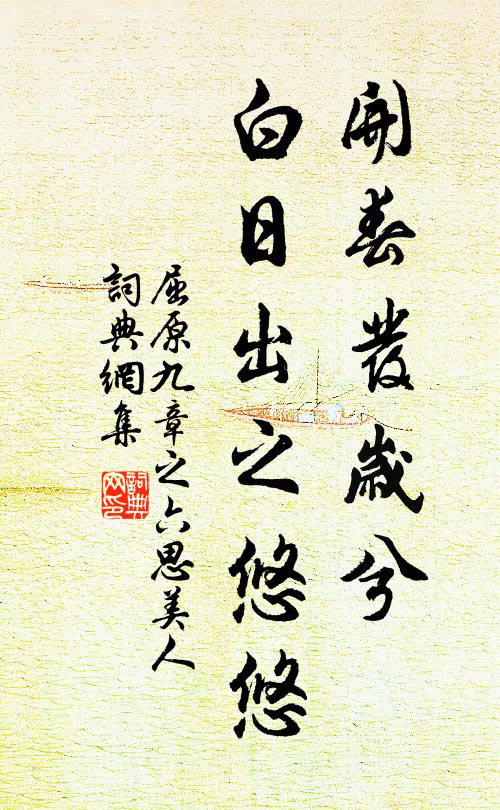 開春發歲兮
白日出之悠悠
屈原九章之六思美人
詞典網集
詞典
网印